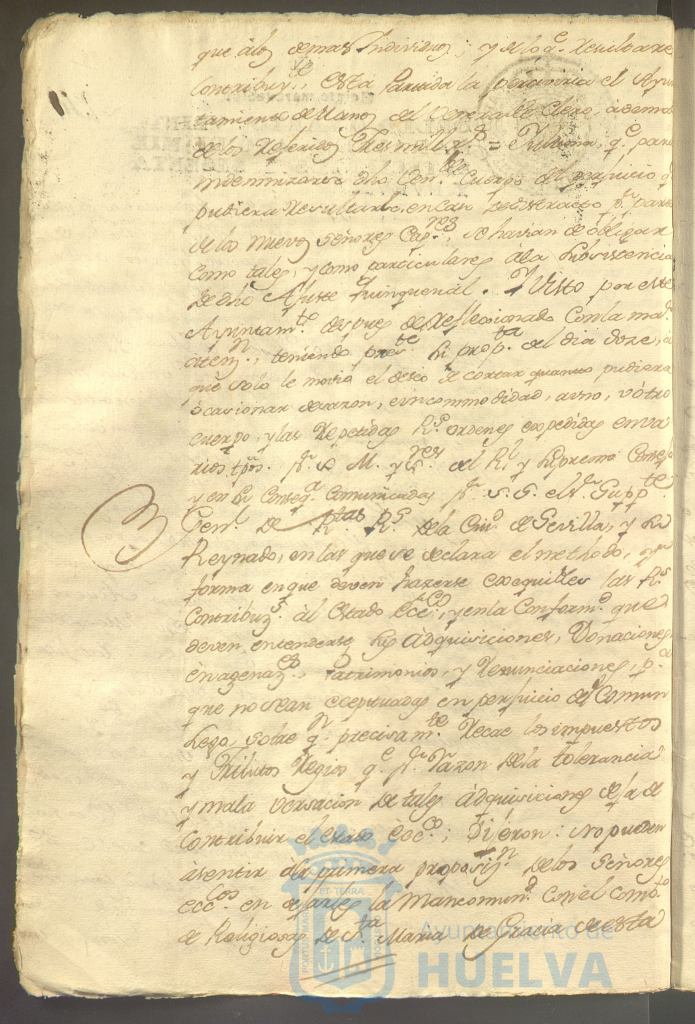 que álos demas Individuos; y de lo q.e resultare
Contribuy.e esta Partida la
tamiento de Manos del Venerable Clero, ademas
de los referidos tres mill r.s =
indemnizarse dho Ven.ble Cuerpo del perjuicio q.
pudiera resultarle, en caso de p.r parte
de los nuevos Señores Cap.res, se havian de obligar
como tales, y como particulares á la subsistencia
de dho Ajuste quinquenal. Y Visto por este
Ayuntam.to despues de refleccionado con la mad.
atenz.n, teniendo pres.te su prop.ta del dia doze, á
que solo le movia el deseo de cortar quanto pudiera
ocasionar desazon, e incommodidad, a uno, u otro
cuerpo, y las repetidas R.s ordenes expedidas en va
rios tpos. p.r S. M. y S.res del R.l y Supremo Consejo
y en su conseq.a comunicadas p.r S. S. el S.r Supp.te
Gen.l de R.tas R.s de la Ciu.d de Sevilla, y su
Reynado, en las que se declara el methodo, y
forma en que deven hazerse exequibles las R.s
Contribuz.s al Estado Ecc.co, y en la Conform.d que
deven entenderse sus Adquisiciones, Donaciones
enagenaz.es, Patrimonios, y Renunciaciones, p.a
que no sean exceptuadas en perjuicio del Comun
Lego, sobre q.n precisam.te recae los impuestos
y Tributos Regios q.e p.r razon de la tolerancia
y mala versacion de tales Adquisiciones dexa de
Contribuir el estado Ecc.co; Dijeron: no pueden
asentir á la primera proposiz.n de los Señores
ecc.cos en dejarles la Mancomun.d con el Comb.to
de Religiosas de S.ta Maria de Gracia de esta
PORTUS
ET TERRA
Ayuntamiento de
HUELVA